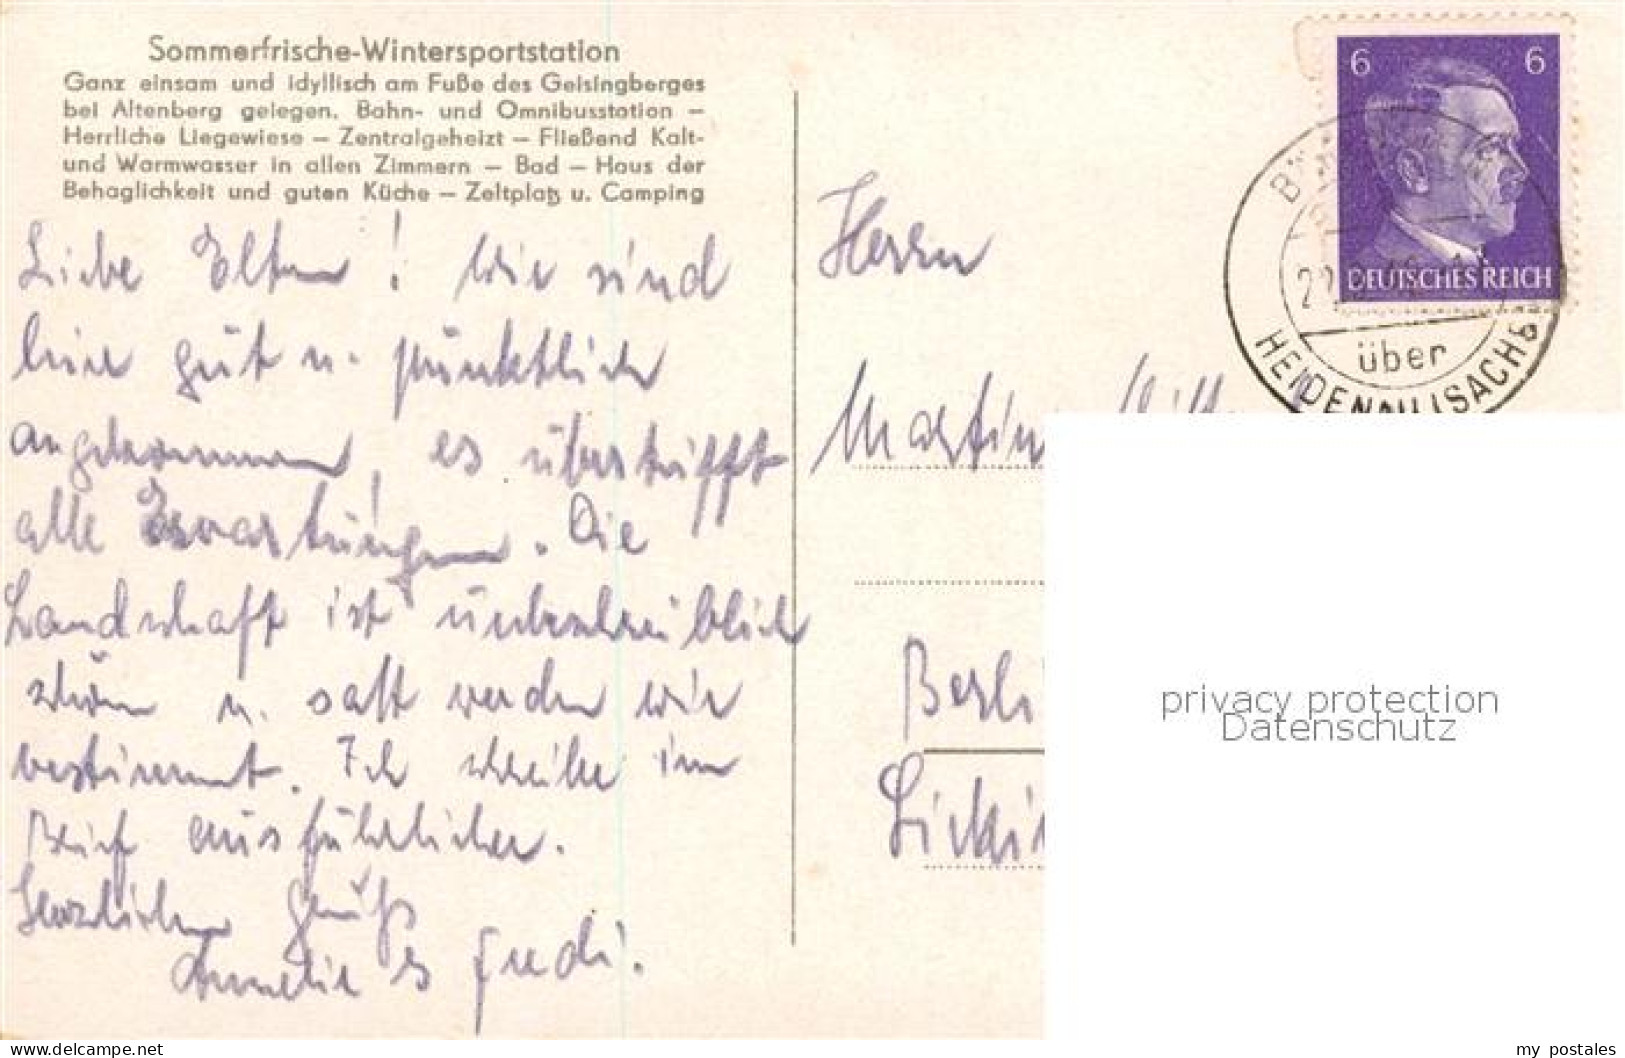 Sommerfrische-Wintersportstation
Ganz einsam und idyllisch am Fuße des Geisingberges
bei Altenberg gelegen. Bahn- und Omnibusstation –
Herrliche Liegewiese – Zentralgeheizt – Fließend Kalt-
und Warmwasser in allen Zimmern – Bad – Haus der
Behaglichkeit und guten Küche – Zeltplatz u. Camping
Liebe Eltern! Wir sind
hier gut u. pünktlich
angekommen, es übertrifft
alle Erwartungen. Die
Landschaft ist unbeschreiblich
schön u. satt werden wir
bestimmt. Ich schreibe im
Brief ausführlicher.
Herzlichen Gruß
Annelie &
6 6
DEUTSCHES REICH
über
HEIDENAU (SACHS
Herrn
Martin
Berli
privacy protection
Datenschutz
my postales
www.delcampe.net